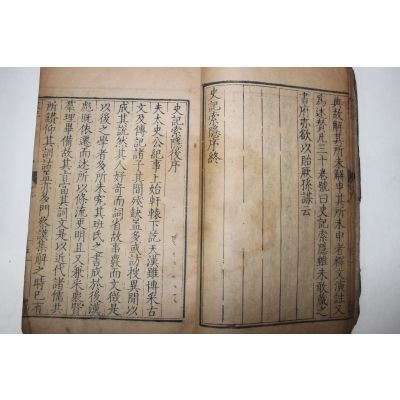 典故解其所未解申其所未申者釋文演註又
爲述贊凡三十卷號曰史記索隱雖未敢藏之
書府亦欲以貽厥孫謀云
史記索隱序終
史記索隱後序
夫太史公紀事上始軒轅下訖天漢雖博采古
文及傳記諸子其間殘缺蓋多或訪搜異聞以
成其說然其人好奇而詞省故事覈而文微是
以後之學者多所未究其班氏之書成於後漢
彪旣依遷而述所以條流更明且又兼采衆賢
羣理畢備故其旨富其詞文是以近代諸儒共
所鑽仰其訓詁蓋亦多門蔡謨集解之時已有